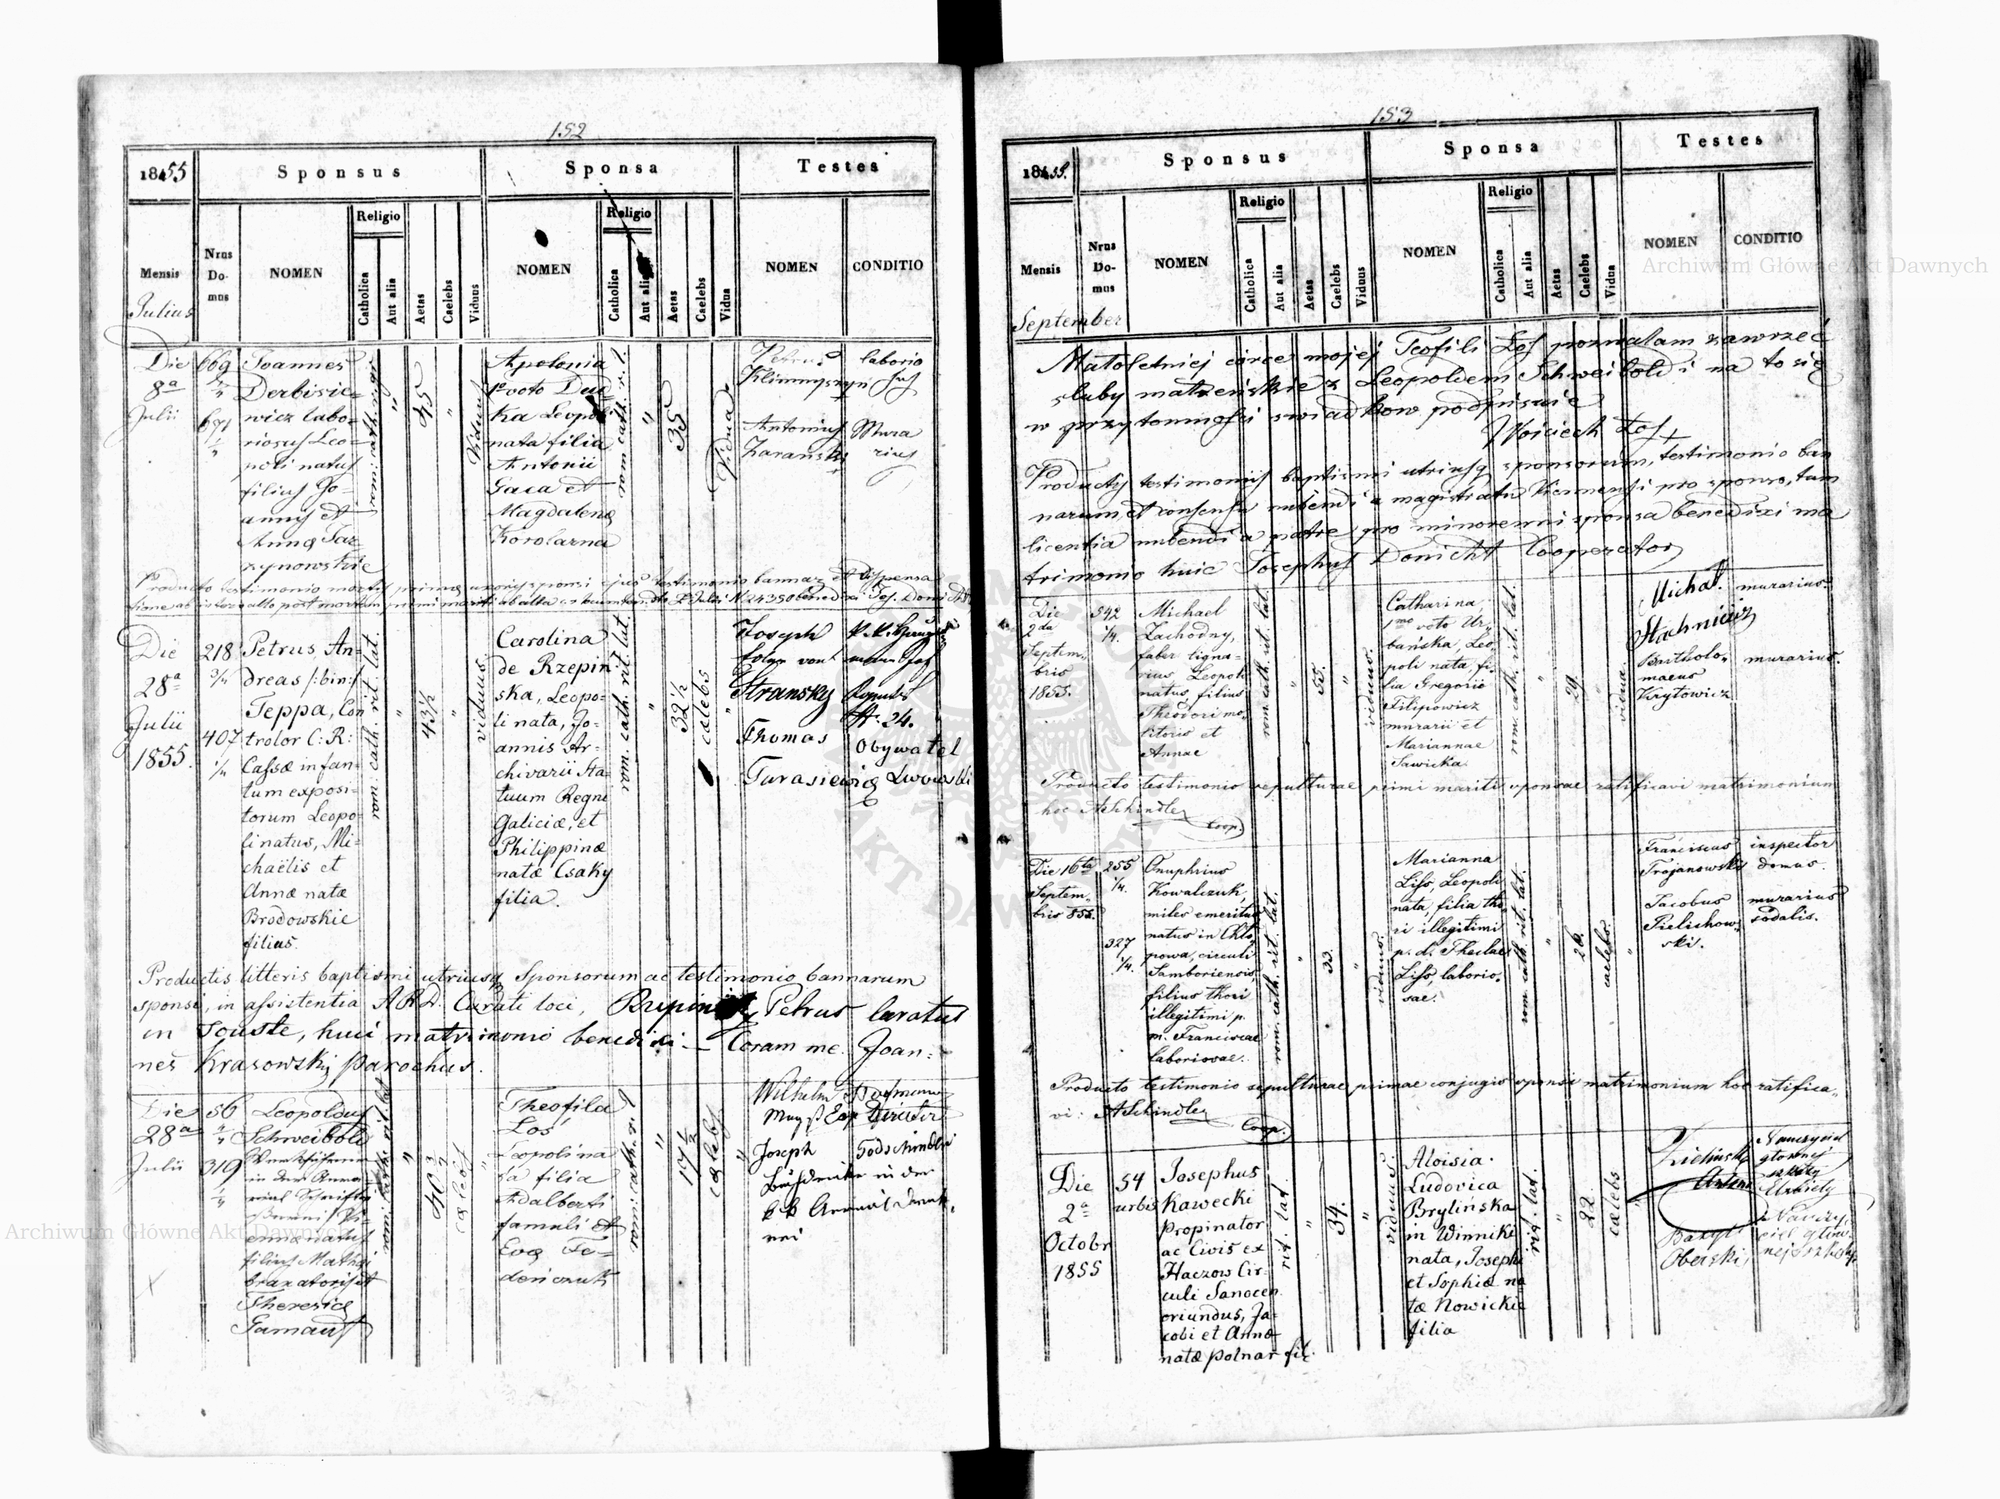 152
1855
Sponsus
Sponsa
Testes
Mensis
Julius
Nrus Domus
NOMEN
Religio
Catholica
Aut alia
Aetas
Caelebs
Viduus
NOMEN
Religio
Catholica
Aut alia
Aetas
Caelebs
Vidua
NOMEN
CONDITIO
Die
8ª
Julii
669
2/4
671
Joannes
Derbisie-
wicz labo-
riosus Leo-
poli natus
filius Jo-
annis et
Anna
45
Viduus
Apolonia
1º voto Dud
ka Leopoli
nata filia
Antonii
Gaca et
Magdalena
35
Vidua
Petrus
Antonius
Zaranski
laborio
sus
Mura
rius
Producto testimonio mortis primae uxoris sponsi
Die
28ª
Julii
1855.
218
3/4
407
1/4
Petrus, An-
dreas /:bin:/
Teppa, Con
trolor C: R:
Cassæ infan-
tum exposi-
torum Leopo-
li natus, Mi-
chaëlis et
Annæ natæ
Brodowskie
filius.
rom: cath. rit. lat.
43½
viduus
Carolina
de Rzepin
ska, Leopo-
li nata, Jo-
annis Ar-
chivarii Sta-
tuum Regni
Galiciæ, et
Philippinæ
natæ Csaky
filia.
rom. cath. rit. lat.
32½
cælebs
Joseph
Stransky
Thomas
Tarasiewicz
Obywatel
Lwowski
Productis litteris baptismi utriusq Sponsorum ac testimonio bannarum
sponsi, in assistentia A.R.D. Curati loci, Petrus Curatus
in Touste, huic matrimonio benedixi — Coram me. Joan-
nes Krasowski parochus.
Die
28ª
Julii
56
2/4
319
Leopoldus
Schweibold
filius Mathei
braxatoris et
Theresiæ
40¾
cælebs
Theofila
Łoś
Leopoli na
ta filia
Adalberti
famuli et
Eva Fe-
17½
cælebs
Wilhelm
Joseph
in der
153
1855.
Sponsus
Sponsa
Testes
Mensis
September
Nrus Domus
NOMEN
Religio
Catholica
Aut alia
Aetas
Caelebs
Viduus
NOMEN
Religio
Catholica
Aut alia
Aetas
Caelebs
Vidua
NOMEN
CONDITIO
Małoletniej córce mojej Teofili Łoś pozwalam zawrzeć
śluby małżeńskie z Leopoldem Schweibold i na to się
w przytomności świadków podpisuie
Wojciech Łoś
Productis testimoniis baptismi utriusq sponsorum, testimonio ban
narum, et consensu nubendi a magistratu Viennensi pro sponso, tum
licentia nubendi a patre pro minorenni sponsa benedixi ma
trimonio huic Josephus Donicht Cooperator
Die
2da
Septem-
bris
1855.
542
1/4.
Michael
Zachodny,
faber ligna-
rius, Leopoli
natus, filius
Theodori mo-
litoris et
Annae
rom. cath. rit. lat.
55.
viduus.
Catharina,
1mo voto Ur-
bańska, Leo-
poli nata, fi-
lia Gregorii
Filipowicz
murarii et
Mariannae
Sawicka
rom. cath. rit. lat.
29.
vidua.
Michał
Stachniewicz
Bartholo-
maeus
Krytowicz
murarius.
murarius.
Producto testimonio sepulturae primi mariti sponsae ratificavi matrimonium
hoc ASchindler
Coop.
Die 16ta
Septem-
bris 855.
255
1/4.
327
1/4.
Onuphrius
Kowalczuk,
miles emeritus
natus in Chło-
powa, circuli
Samboriensis,
filius thori
illegitimi p.
m. Franciscae
laboriosae.
rom. cath. rit. lat.
33.
viduus.
Marianna
Liss, Leopoli
nata, filia tho-
ri illegitimi
p. d. Theclae
Liss, laborio-
sae.
rom. cath. rit. lat.
26.
caelebs.
Franciscus
Trojanowski
Jacobus
Pielichow-
ski.
inspector
domus.
murarius
sodalis.
Producto testimonio sepulturae primae conjugis sponsi matrimonium hoc ratifica-
vi: ASchindler
Coop.
Die
2ª
Octobr
1855
54
urbis
Josephus
Kawecki
Propinator
ac Civis ex
Haczow Cir-
culi Sanocen
oriundus, Ja-
cobi et Annæ
natæ Polnar fil:
rit. lat.
34.
viduus.
Aloisia
Ludovica
Brylińska
in Winniki
nata, Josephi
et Sophiæ na
tæ Nowickie
filia
rit. lat.
22.
cælebs
Zieliński
Antoni
Bazyli
Oberski,
Nauczyciel
głównej
szkoły
Elżbiety
Nauczy-
ciel głów-
nej szkoły.
Archiwum Główne Akt Dawnych
Archiwum Główne Akt Dawnych